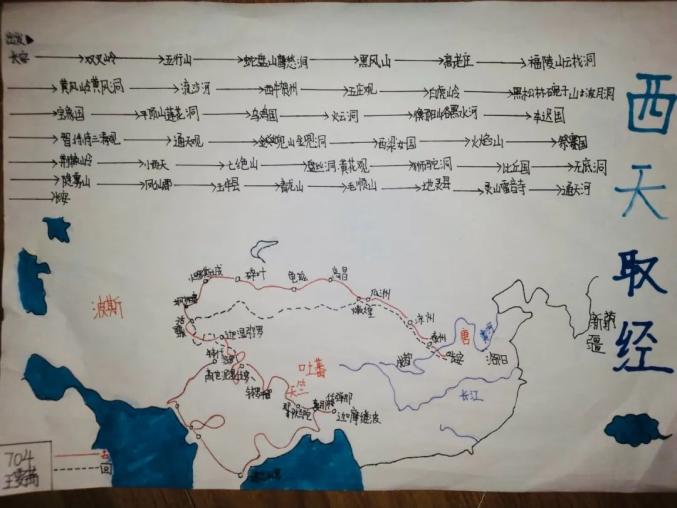 出发
长安 → 双叉岭 → 五行山 → 蛇盘山鹰愁涧 → 黑风山 → 高老庄 → 福陵山云栈洞
→ 黄风岭黄风洞 → 流沙河 → 西牛贺州 → 五庄观 → 白虎岭 → 黑松林碗子山波月洞
→ 宝象国 → 平顶山莲花洞 → 乌鸡国 → 火云洞 → 衡阳峪黑水河 → 车迟国
→ 智渊寺三清观 → 通天观 → 金兜山金兜洞 → 西梁女国 → 火焰山 → 祭赛国
→ 荆棘岭 → 小西天 → 七绝山 → 盘丝洞黄花观 → 狮驼洞 → 比丘国 → 无底洞
→ 隐雾山 → 凤仙郡 → 玉华县 → 青龙山 → 毛颖山 → 地灵县 → 灵山雷音寺 → 通天河
→ 长安
西天取经
碎叶
龟兹
高昌
瓜州
敦煌
凉州
秦州
长安
洛阳
唐
黄河
长江
新疆
波斯
吐蕃
天竺
704
去
回